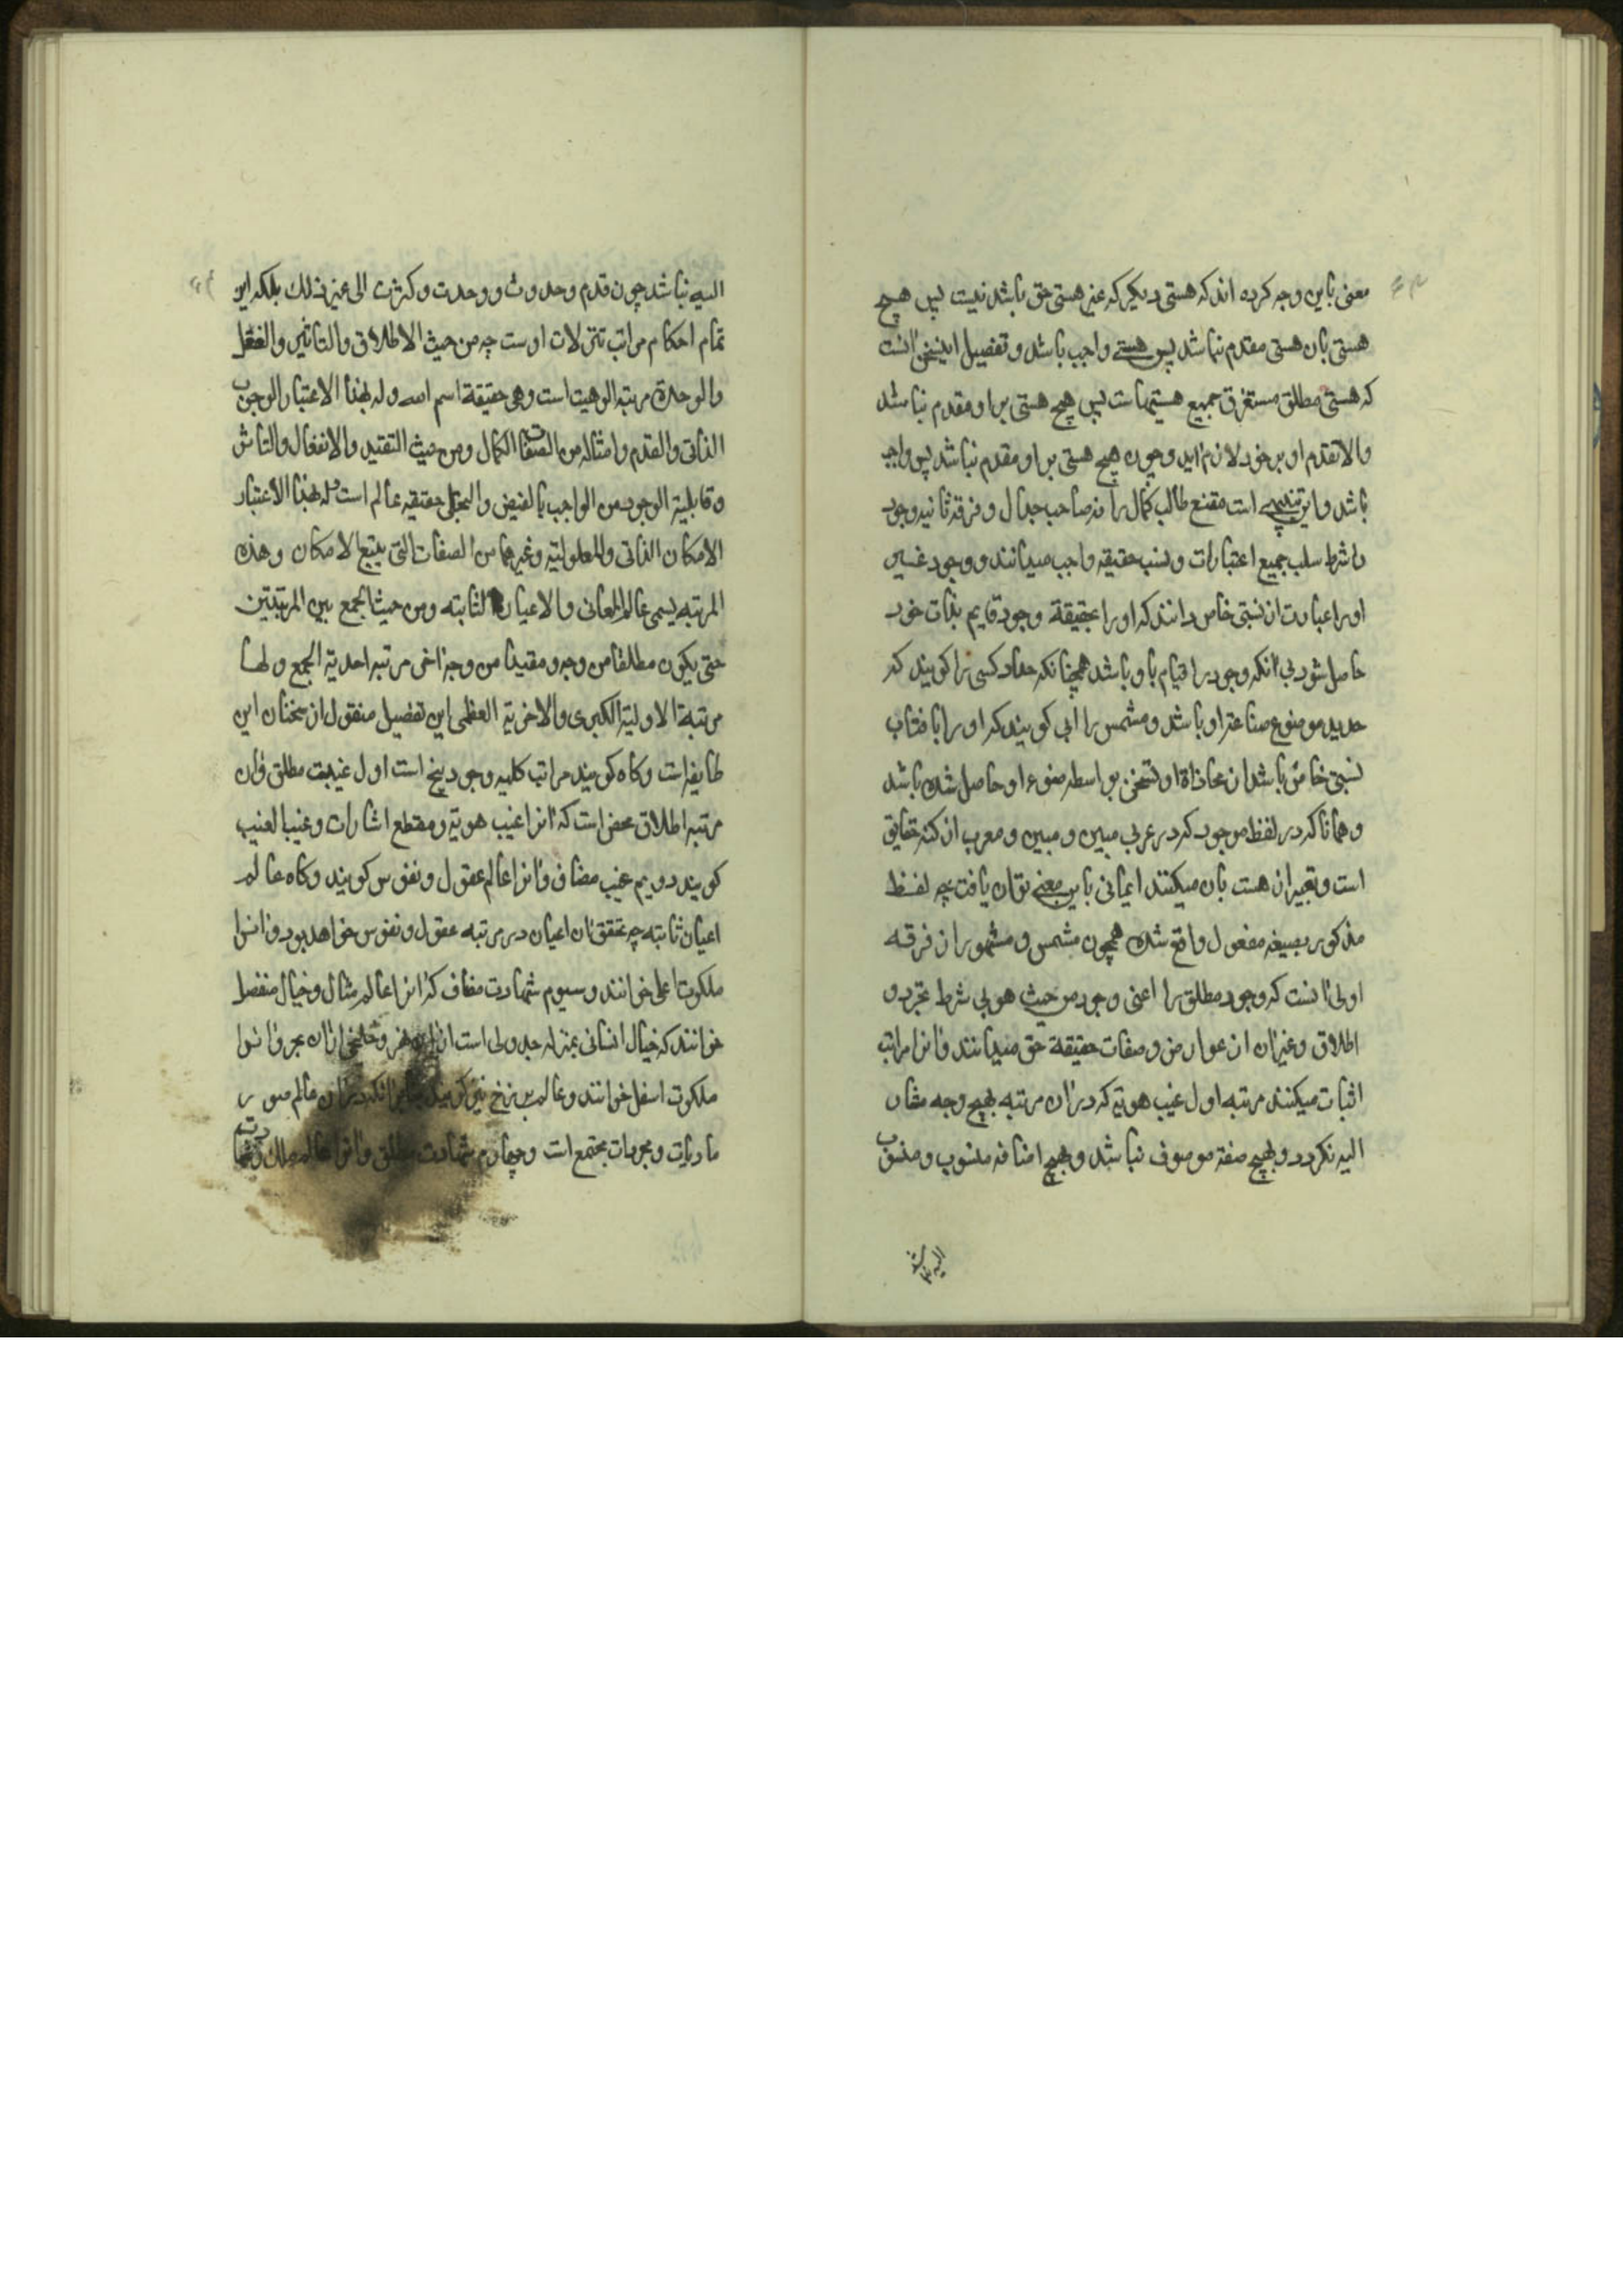 معنی باین وجه کرده اند که هستی دیکر که غیر هستی حق باشد نیست پس هیچ
هستی بان هستی مقدم نباشد پس هستی واجب باشد و تفصیل اینسخن انست
که هستی مطلق مستغرق جمیع هستیهاست پس هیچ هستی براو مقدم نباشد
والا تقدم او بر خود لازم اید و چون هیچ هستی براو مقدم نباشد پس واجب
باشد و این تنبیهی است مقنع طالب کمال را نه صاحب جدال و فرقه ثانیه وجود
بشرط سلب جمیع اعتبارات و نسب حقیقه واجب میدانند و وجود غیر
اورا عبارت از نسبتی خاص دانند که اورا بحقیقة وجود قایم بذات خود
حاصل شود بی انکه وجود را قیام باو باشد همچنانکه حداد کسی را کویند که
حدید موضوع صناعة او باشد و مشمس را ابی کویند که اورا بافتاب
نسبتی خاص باشد از محاذاة او تسخنی بواسطه ضوء او حاصل شده باشد
و همانا که در لفظ موجود که در عربی مبین و مبین و معرب از کنه حقایق
است و تعبیر از هست بان میکنند ایمائی باین معنی توان یافت چه لفظ
مذکور بصیغه مفعول واقع شده همچون مشمس و مشهور از فرقه
اولی انست که وجود مطلق را اعنی وجود من حیث هو بی شرط تجرد و
اطلاق و غیران از عوارض و صفات حقیقة حق میدانند و انرا مراتب
اثبات میکنند مرتبه اول غیب هویة که دران مرتبه بهیچ وجه مشار
الیه نکردد و بهیچ صفة موصوف نباشد و بهیچ اضافه منسوب و منسوب
الیه نباشد
الیه نباشد چون قدم و حدوث و وحدت و کثرت الی غیر ذلک بلکه این
تمام احکام مراتب تنزلات اوست چه من حیث الاطلاق والتاثیر والفعل
والوحدة مرتبه الوهیت است وهی حقیقة اسم الله وله بهذا الاعتبار الوجوب
الذاتی والقدم وامثاله من الصفات الکمال ومن حیث التقید والانفعال والتاثر
وقابلیة الوجود من الواجب بالفیض والتجلی حقیقه عالم است وله بهذا الاعتبار
الامکان الذاتی والمعلولیة وغیرهما من الصفات التی یتبع الامکان وهذه
المرتبه یسمی عالم المعانی والاعیان الثابته ومن حیث الجمع بین المرتبتین
حتی یکون مطلقا من وجه ومقیدا من وجه اخر مرتبه احدیة الجمع ولها
مرتبة الاولیة الکبری والاخریة العظمی این تفصیل منقول از سخنان این
طایفه است و کاه کویند مراتب کلیه وجود پنج است اول غیبت مطلق و ان
مرتبه اطلاق محض است که انرا غیب هویة و مقطع اشارات و غیب الغیب
کویند دویم غیب مضاف و انرا عالم عقول و نفوس کویند و کاه عالم
اعیان ثابته چه تحقق ان اعیان در مرتبه عقول و نفوس خواهد بود و انرا
ملکوت اعلی خوانند و سیوم شهادت مضاف که انرا عالم مثال و خیال منفصل
خوانند که خیال انسانی بمنزله جدولی است از این نهر و خلیجی ازان بحر و انرا
ملکوت اسفل خوانند و عالم برزخ نیز کویند بنابر انکه دران عالم صور
مادیات و مجردات مجتمع است و چهارم شهادت مطلق و انرا عالم ملک و شهادت